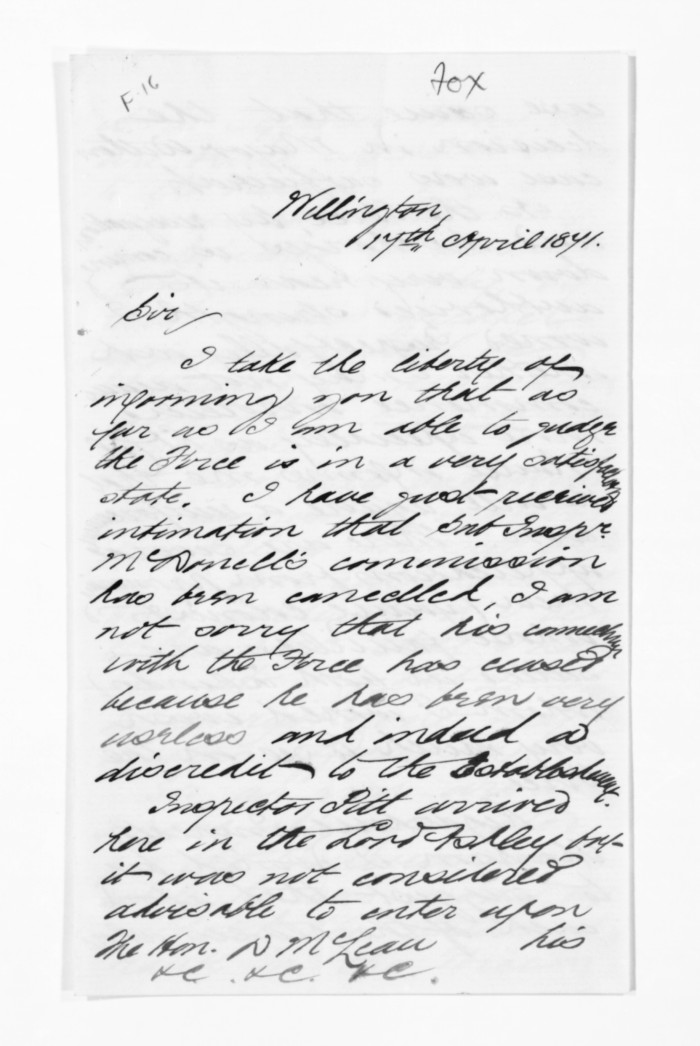 F-16
Fox
Wellington
17th April 1871.
Sir
I take the liberty of
informing you that as
far as I am able to judge
the Force is in a very satisfactory
state. I have just received
intimation that Sub Inspr.
McDonell's commission
has been cancelled, I am
not sorry that his connection
with the Force has ceased
because he has been very
useless and indeed a
discredit to the Establishment.
Inspector Pitt arrived
here in the Lord Ashley but
it was not considered
advisable to enter upon
The Hon. D McLean his
&c. &c. &c.